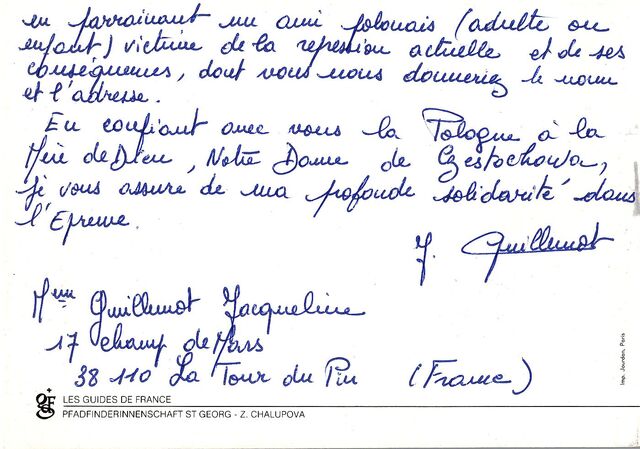 en parrainant un ami polonais (adulte ou
enfant) victime de la repression actuelle et de ses
conséquences, dont vous nous donneriez le nom
et l'adresse.
En confiant avec vous la Pologne à la
Mère de Dieu, Notre Dame de Czestochowa,
je vous assure de ma profonde solidarité dans
l'Epreuve.
J. Guillemot
Mme Guillemot Jacqueline
17 champ de Mars
38 110 La Tour du Pin (France)
Imp. Jourdan, Paris
LES GUIDES DE FRANCE
PFADFINDERINNENSCHAFT ST GEORG - Z. CHALUPOVA